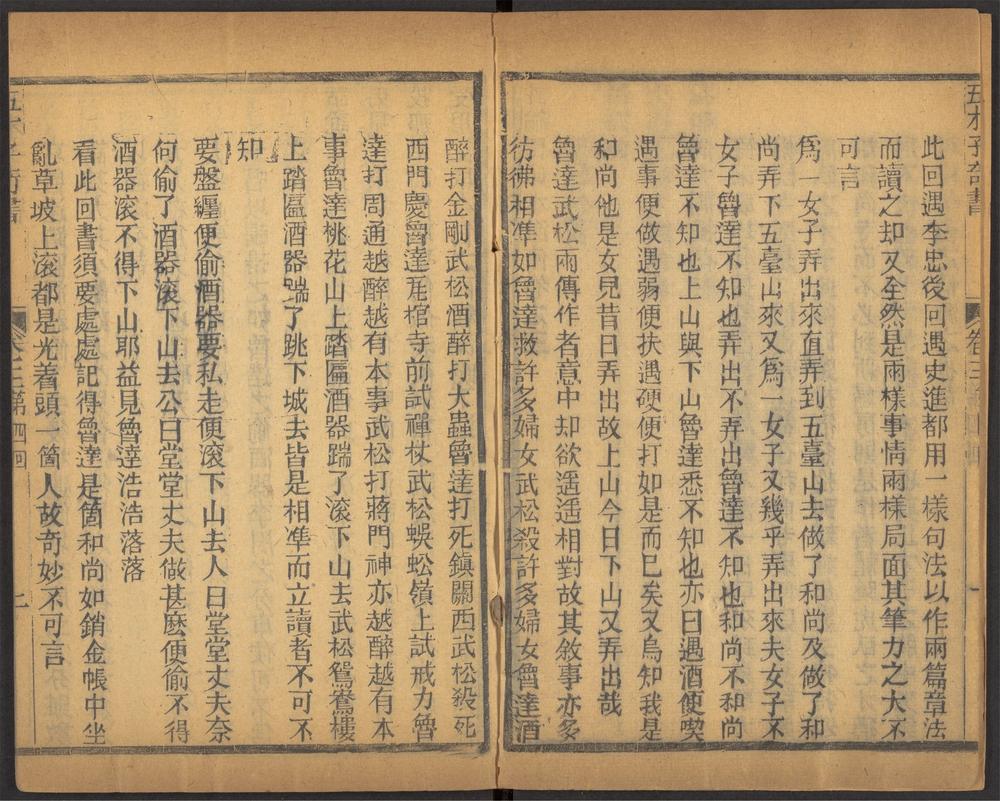 此回遇李忠後回遇史進都用一樣句法以作兩篇章法
而讀之却又全然是兩樣事情兩樣局面其筆力之大不
可言
爲一女子弄出來直弄到五臺山去做了和尚及做了和
尚弄下五臺山來又爲一女子又幾乎弄出來夫女子不
女子魯達不知也弄出不弄出魯達不知也和尚不和尚
魯達不知也上山與下山魯達悉不知也亦曰遇酒便喫
遇事便做遇弱便扶遇硬便打如是而已矣又烏知我是
和尚他是女兒昔日弄出故上山今日下山又弄出哉
魯達武松兩傳作者意中却欲遥遥相對故其敘事亦多
彷彿相凖如魯達救許多婦女武松殺許多婦女魯達酒
醉打金剛武松酒醉打大蟲魯達打死鎮關西武松殺死
西門慶魯達瓦棺寺前試禪杖武松蜈蚣嶺上試戒刀魯
達打周通越醉越有本事武松打蔣門神亦越醉越有本
事魯達桃花山上踏匾酒器踹了滚下山去武松鴛鴦樓
上踏匾酒器踹了跳下城去皆是相凖而立讀者不可不
知
要盤纏便偷酒器要私走便滚下山去人曰堂堂丈夫奈
何偷了酒器滚下山去公曰堂堂丈夫做甚麽便偷不得
酒器滚不得下山耶益見魯達浩浩落落
看此回書須要處處記得魯達是箇和尚如銷金帳中坐
亂草坡上滚都是光着頭一箇人故奇妙不可言
五才子奇書
卷三第四回
一